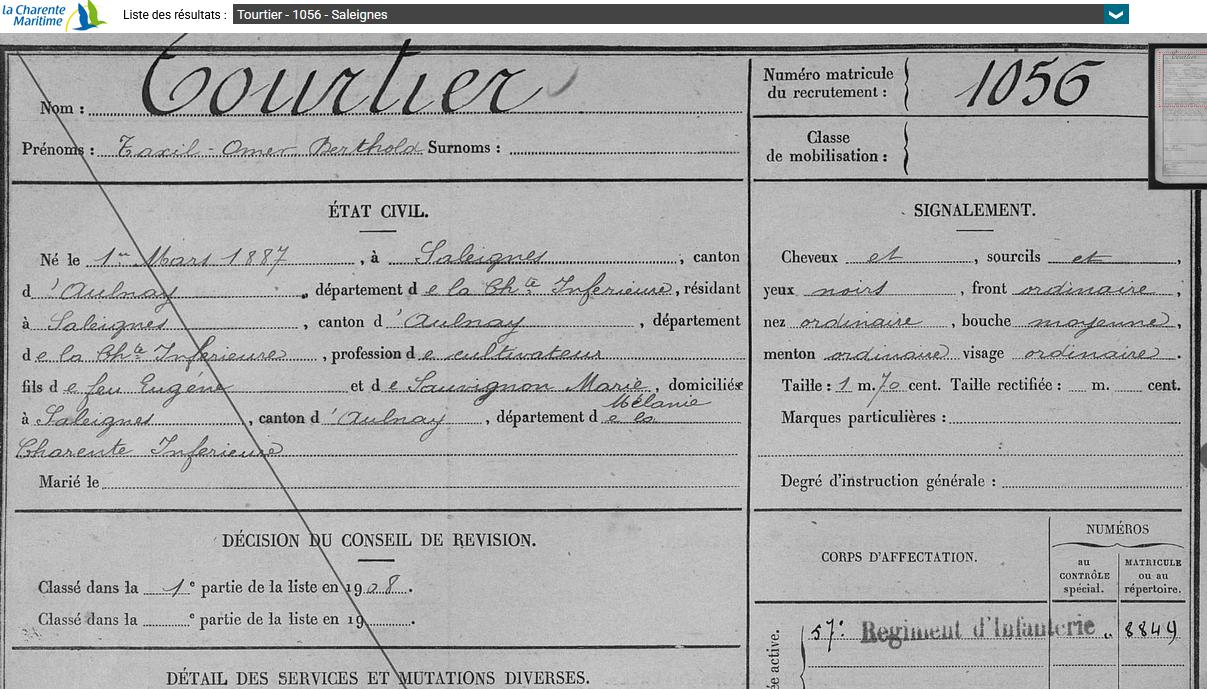 la Charente
Maritime
Liste des résultats :
Tourtier - 1056 - Saleignes
Nom : Tourtier
Numéro matricule
du recrutement :
1056
Prénoms : Taxil - Omer Berthold Surnoms :
Classe
de mobilisation :
ÉTAT CIVIL.
Né le 1er Mars 1887, à Saleignes, canton
d'Aulnay, département de la Chte Inferieure, résidant
à Saleignes, canton d'Aulnay, département
de la Chte Inferieure, profession de cultivateur
fils de feu Eugéne et de Sauvignon Marie, domiciliés
Mélanie
à Saleignes, canton d'Aulnay, département de la
Charente Inferieure
Marié le
DÉCISION DU CONSEIL DE REVISION.
Classé dans la 1e partie de la liste en 1908.
Classé dans la e partie de la liste en 19 .
DÉTAIL DES SERVICES ET MUTATIONS DIVERSES.
SIGNALEMENT.
Cheveux et, sourcils et,
yeux noirs, front ordinaire,
nez ordinaire, bouche moyenne,
menton ordinaire visage ordinaire.
Taille : 1 m. 70 cent. Taille rectifiée : m. cent.
Marques particulières :
Degré d'instruction générale :
CORPS D'AFFECTATION.
NUMÉROS
au
CONTRÔLE
spécial.
MATRICULE
ou au
répertoire.
ée active.
57e Regiment d'Infanterie
" 8849